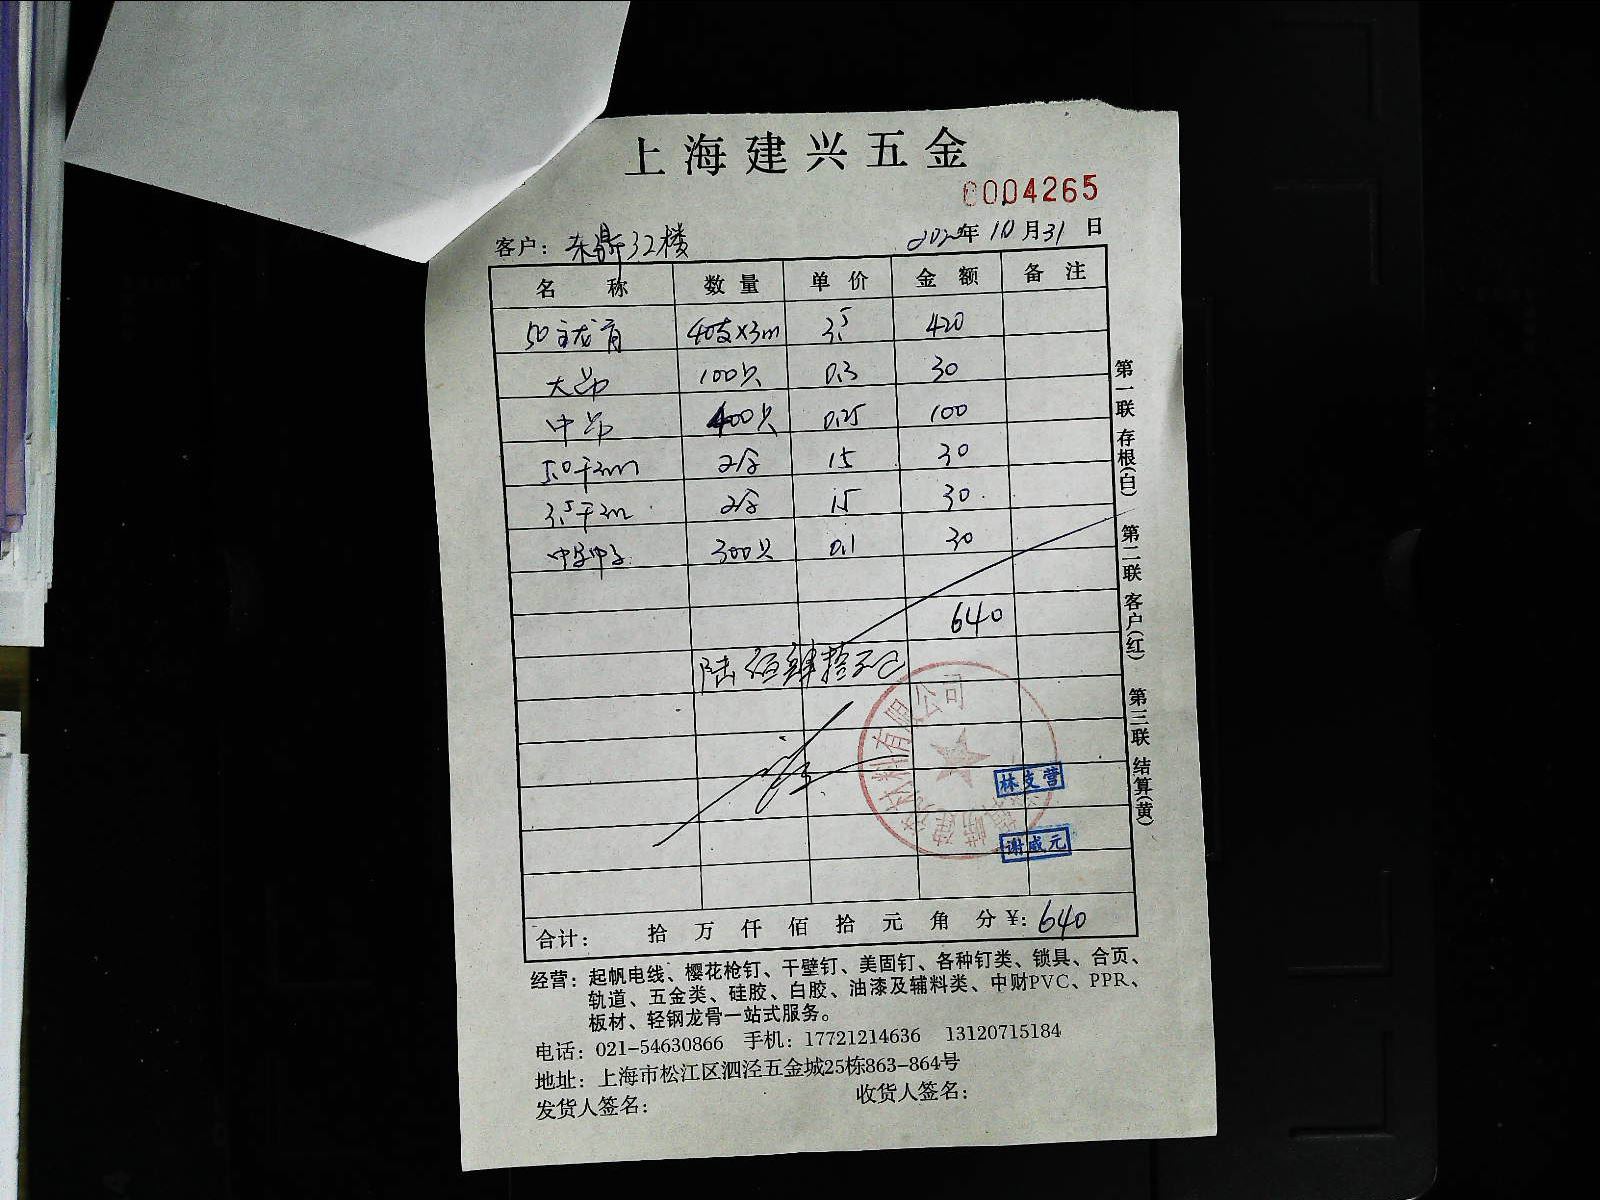 上海建兴五金
0004265
客户：东鼎32楼 2020年10月31日
名称 数量 单价 金额 备注
50主龙骨 40支×3m 3.5 420
大吊 100只 0.3 30
中吊 400只 0.25 100
5.0干2m 2合 15 30
3.5干2m 2合 15 30
中吊中子 300只 0.1 30
640
陆佰肆拾元正
材料有限公司
林支营
谢威元
合计： 拾 万 仟 佰 拾 元 角 分 ¥：640
经营：起帆电线、樱花枪钉、干壁钉、美固钉、各种钉类、锁具、合页、
轨道、五金类、硅胶、白胶、油漆及辅料类、中财PVC、PPR、
板材、轻钢龙骨一站式服务。
电话：021-54630866 手机：17721214636 13120715184
地址：上海市松江区泗泾五金城25栋863-864号
发货人签名： 收货人签名：
第一联 存根(白) 第二联 客户(红) 第三联 结算(黄)